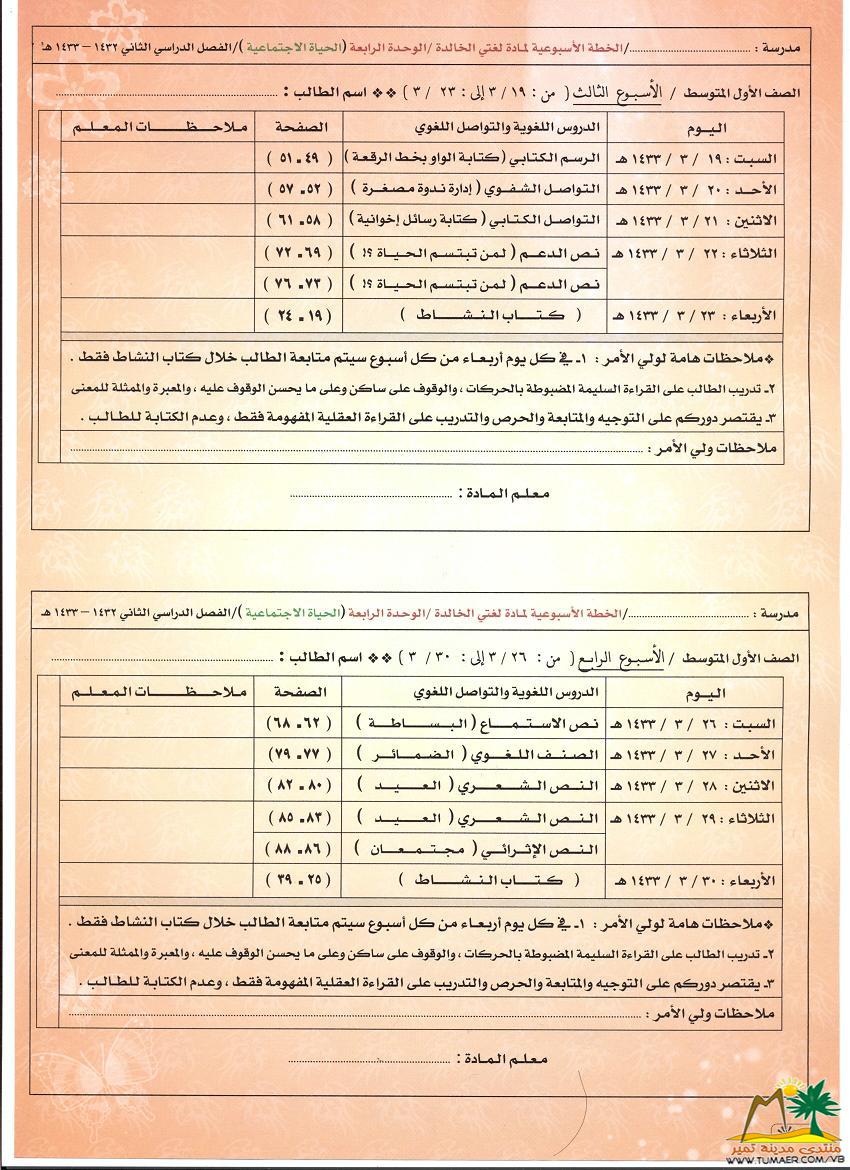 مدرسة : ............................/الخطة الأسبوعية لمادة لغتي الخالدة /الوحدة الرابعة (الحياة الاجتماعية )/الفصل الدراسي الثاني ١٤٣٢ – ١٤٣٣ هـ
الصف الأول المتوسط / الأسبوع الثالث ( من : ١٩ / ٣ إلى : ٢٣ / ٣ ) ❖❖ اسم الطالب : ............................
اليوم الدروس اللغوية والتواصل اللغوي الصفحة ملاحظات المعلم
السبت : ١٩ / ٣ / ١٤٣٣ هـ الرسم الكتابي ( كتابة الواو بخط الرقعة ) ( ٤٩ـ ٥١ )
الأحد : ٢٠ / ٣ / ١٤٣٣ هـ التواصل الشفوي ( إدارة ندوة مصغرة ) ( ٥٢ـ ٥٧ )
الاثنين : ٢١ / ٣ / ١٤٣٣ هـ التواصل الكتابي ( كتابة رسائل إخوانية ) ( ٥٨ـ ٦١ )
الثلاثاء : ٢٢ / ٣ / ١٤٣٣ هـ نص الدعم ( لمن تبتسم الحياة ؟! ) ( ٦٩ـ ٧٢ )
نص الدعم ( لمن تبتسم الحياة ؟! ) ( ٧٣ـ ٧٦ )
الأربعاء : ٢٣ / ٣ / ١٤٣٣ هـ ( كتاب النشاط ) ( ١٩ـ ٢٤ )
❖ملاحظات هامة لولي الأمر : ١ـ في كل يوم أربعاء من كل أسبوع سيتم متابعة الطالب خلال كتاب النشاط فقط .
٢ـ تدريب الطالب على القراءة السليمة المضبوطة بالحركات ، والوقوف على ساكن وعلى ما يحسن الوقوف عليه ، والمعبرة والممثلة للمعنى
٣ـ يقتصر دوركم على التوجيه والمتابعة والحرص والتدريب على القراءة العقلية المفهومة فقط ، وعدم الكتابة للطالب .
ملاحظات ولي الأمر : ............................
معلم المادة : ............................
مدرسة : ............................/الخطة الأسبوعية لمادة لغتي الخالدة /الوحدة الرابعة (الحياة الاجتماعية )/الفصل الدراسي الثاني ١٤٣٢ – ١٤٣٣ هـ
الصف الأول المتوسط / الأسبوع الرابع ( من : ٢٦ / ٣ إلى : ٣٠ / ٣ ) ❖❖ اسم الطالب : ............................
اليوم الدروس اللغوية والتواصل اللغوي الصفحة ملاحظات المعلم
السبت : ٢٦ / ٣ / ١٤٣٣ هـ نص الاستماع ( البساطة ) ( ٦٢ـ ٦٨ )
الأحد : ٢٧ / ٣ / ١٤٣٣ هـ الصنف اللغوي ( الضمائر ) ( ٧٧ـ ٧٩ )
الاثنين : ٢٨ / ٣ / ١٤٣٣ هـ النص الشعري ( العيد ) ( ٨٠ـ ٨٢ )
الثلاثاء : ٢٩ / ٣ / ١٤٣٣ هـ النص الشعري ( العيد ) ( ٨٣ـ ٨٥ )
النص الإثرائي ( مجتمعان ) ( ٨٦ـ ٨٨ )
الأربعاء : ٣٠ / ٣ / ١٤٣٣ هـ ( كتاب النشاط ) ( ٢٥ـ ٣٩ )
❖ملاحظات هامة لولي الأمر : ١ـ في كل يوم أربعاء من كل أسبوع سيتم متابعة الطالب خلال كتاب النشاط فقط .
٢ـ تدريب الطالب على القراءة السليمة المضبوطة بالحركات ، والوقوف على ساكن وعلى ما يحسن الوقوف عليه ، والمعبرة والممثلة للمعنى
٣ـ يقتصر دوركم على التوجيه والمتابعة والحرص والتدريب على القراءة العقلية المفهومة فقط ، وعدم الكتابة للطالب .
ملاحظات ولي الأمر : ............................
معلم المادة : ............................
منتدى مدينة تمير
WWW.TUMAER.COM/VB